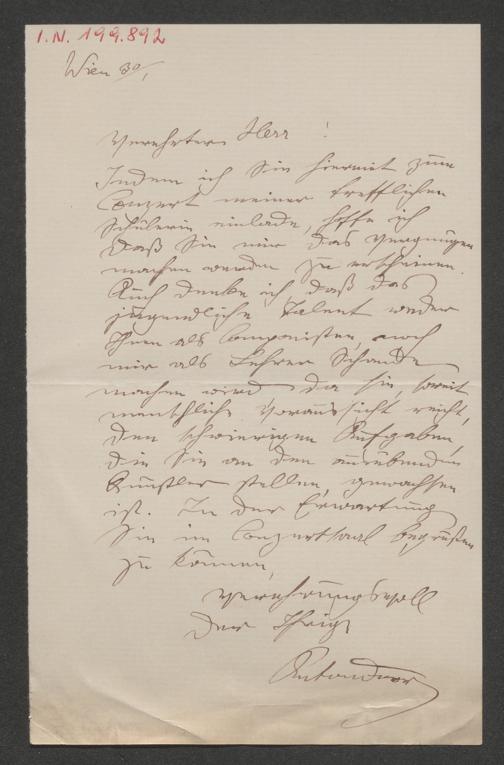 I.N. 199.892
Wien 30/1
Verehrter Herr!
Indem ich Sie hiermit zum
Conzert meiner trefflichen
Schülerin einlade, hoffe ich
daß Sie mir das Vergnügen
machen werden zu erscheinen.
Auch denke ich daß das
jugendliche Talent weder
Ihnen als Componisten, noch
mir als Lehrer Schande
machen wird da sie, soweit
menschliche Voraussicht reicht,
den schwierigen Aufgaben,
die Sie an den ausübenden
Künstler stellen, gewachsen
ist. In der Erwartung
Sie im Conzertsaal begrüßen
zu können,
verehrungsvoll
der Ihrige
Anton Door